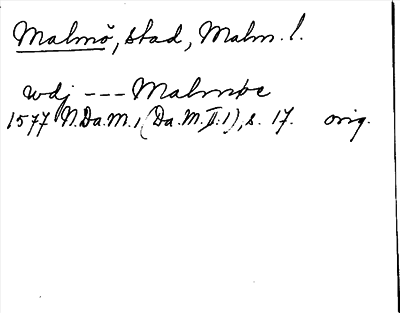 Malmö, stad, Malm. l.
udj --- Malmøe
1577 N.Da.M. 1 (Da.M.II:1), s. 17. orig.